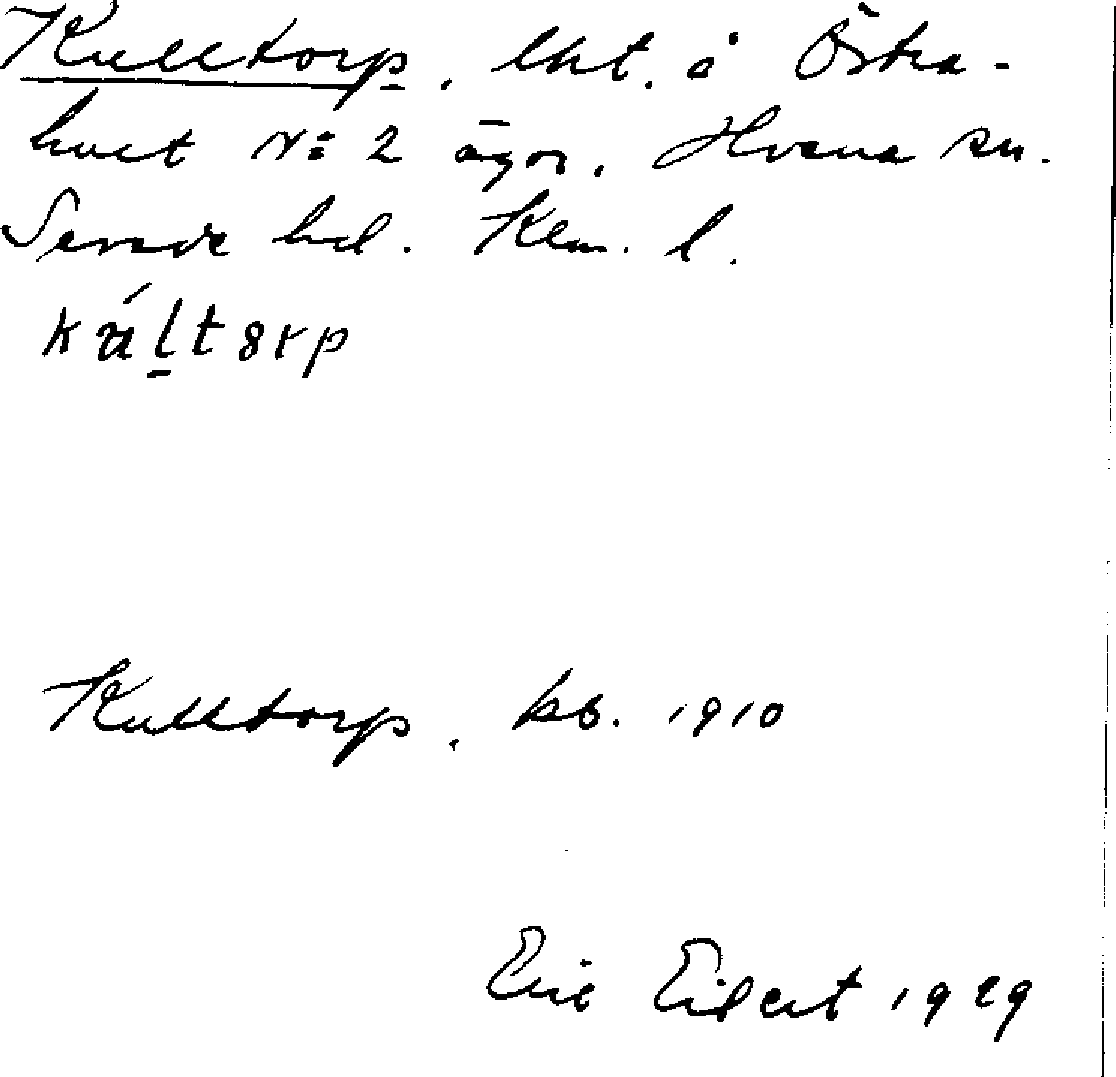 Kulltorp, lht. å Östra-
huet N:o 2 ägor, Hvena sn.
Sevede hd. Klm. l.
Kulltorp, kb. 1910
Eric Eilert 1929